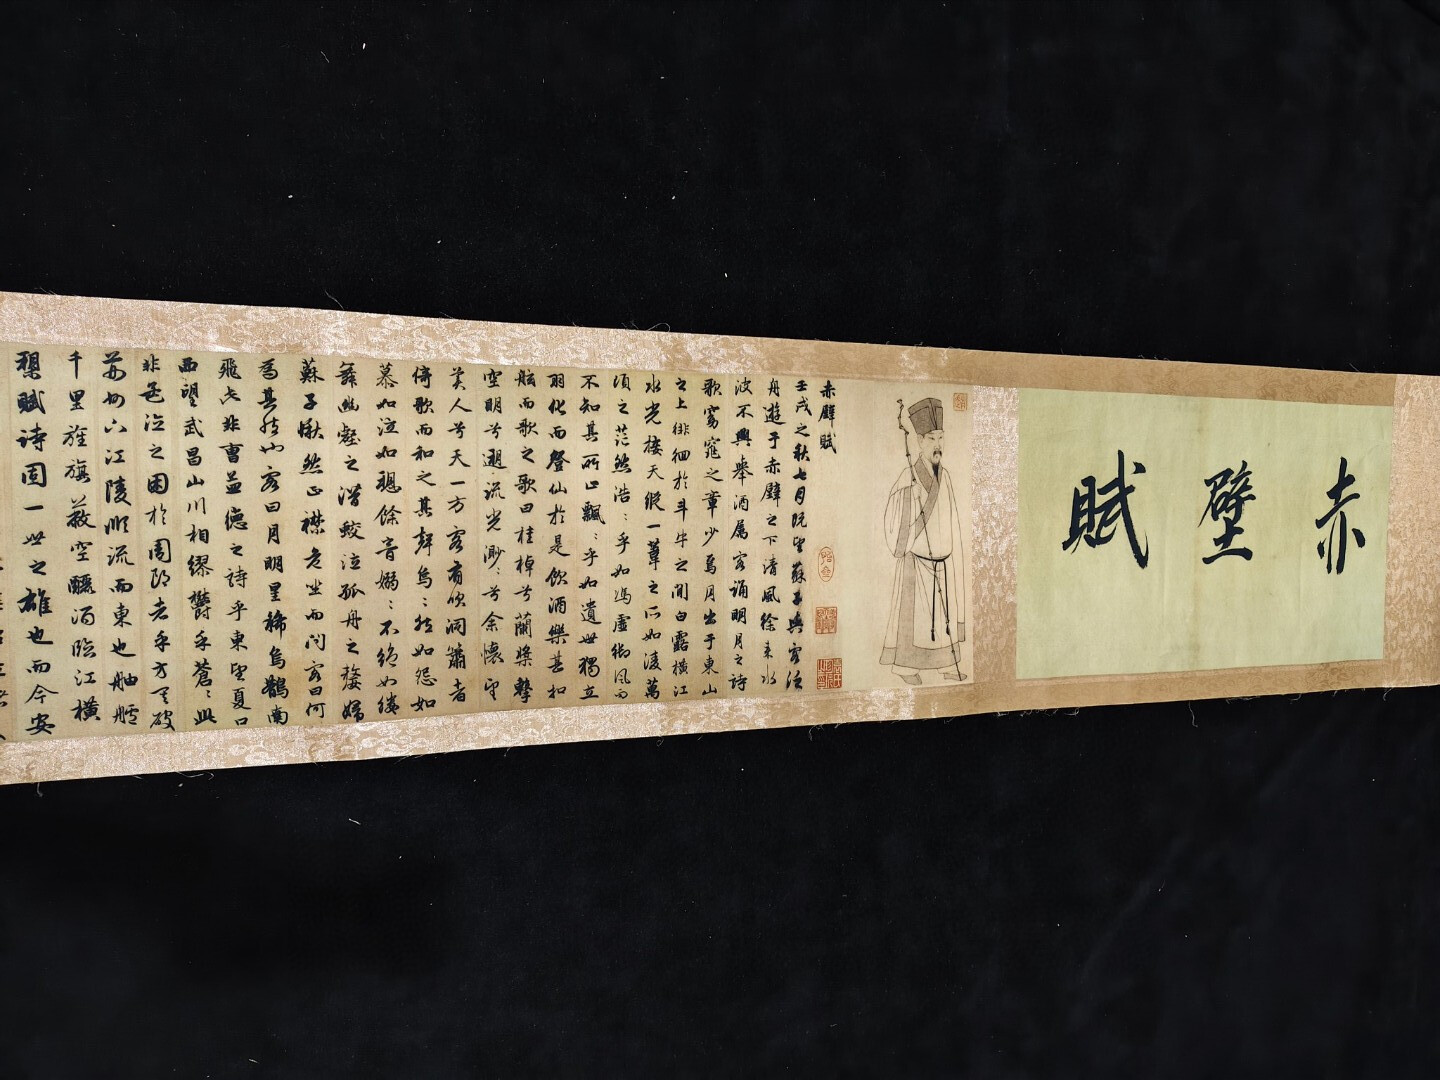 赤壁賦
赤壁賦
壬戌之秋七月既望蘇子與客泛
舟遊于赤壁之下清風徐来水
波不興舉酒属客誦明月之詩
歌窈窕之章少焉月出于東山
之上徘徊於斗牛之間白露横江
水光接天縱一葦之所如淩萬
頃之茫然浩〻乎如馮虚御風而
不知其所止飄〻乎如遺世獨立
羽化而登仙於是飲酒樂甚扣
舷而歌之歌曰桂棹兮蘭槳擊
空明兮遡流光渺〻兮余懷望
美人兮天一方客有吹洞簫者
倚歌而和之其聲烏〻然如怨如
慕如泣如愬餘音嫋〻不絶如縷
舞幽壑之潛蛟泣孤舟之嫠婦
蘇子愀然正襟危坐而問客曰何
為其然也客曰月明星稀烏鵲南
飛此非曹孟德之詩乎東望夏口
西望武昌山川相繆鬱乎蒼〻此
非孟德之困於周郎者乎方其破
荊州下江陵順流而東也舳艫
千里旌旗蔽空釃酒臨江横
槊賦詩固一世之雄也而今安